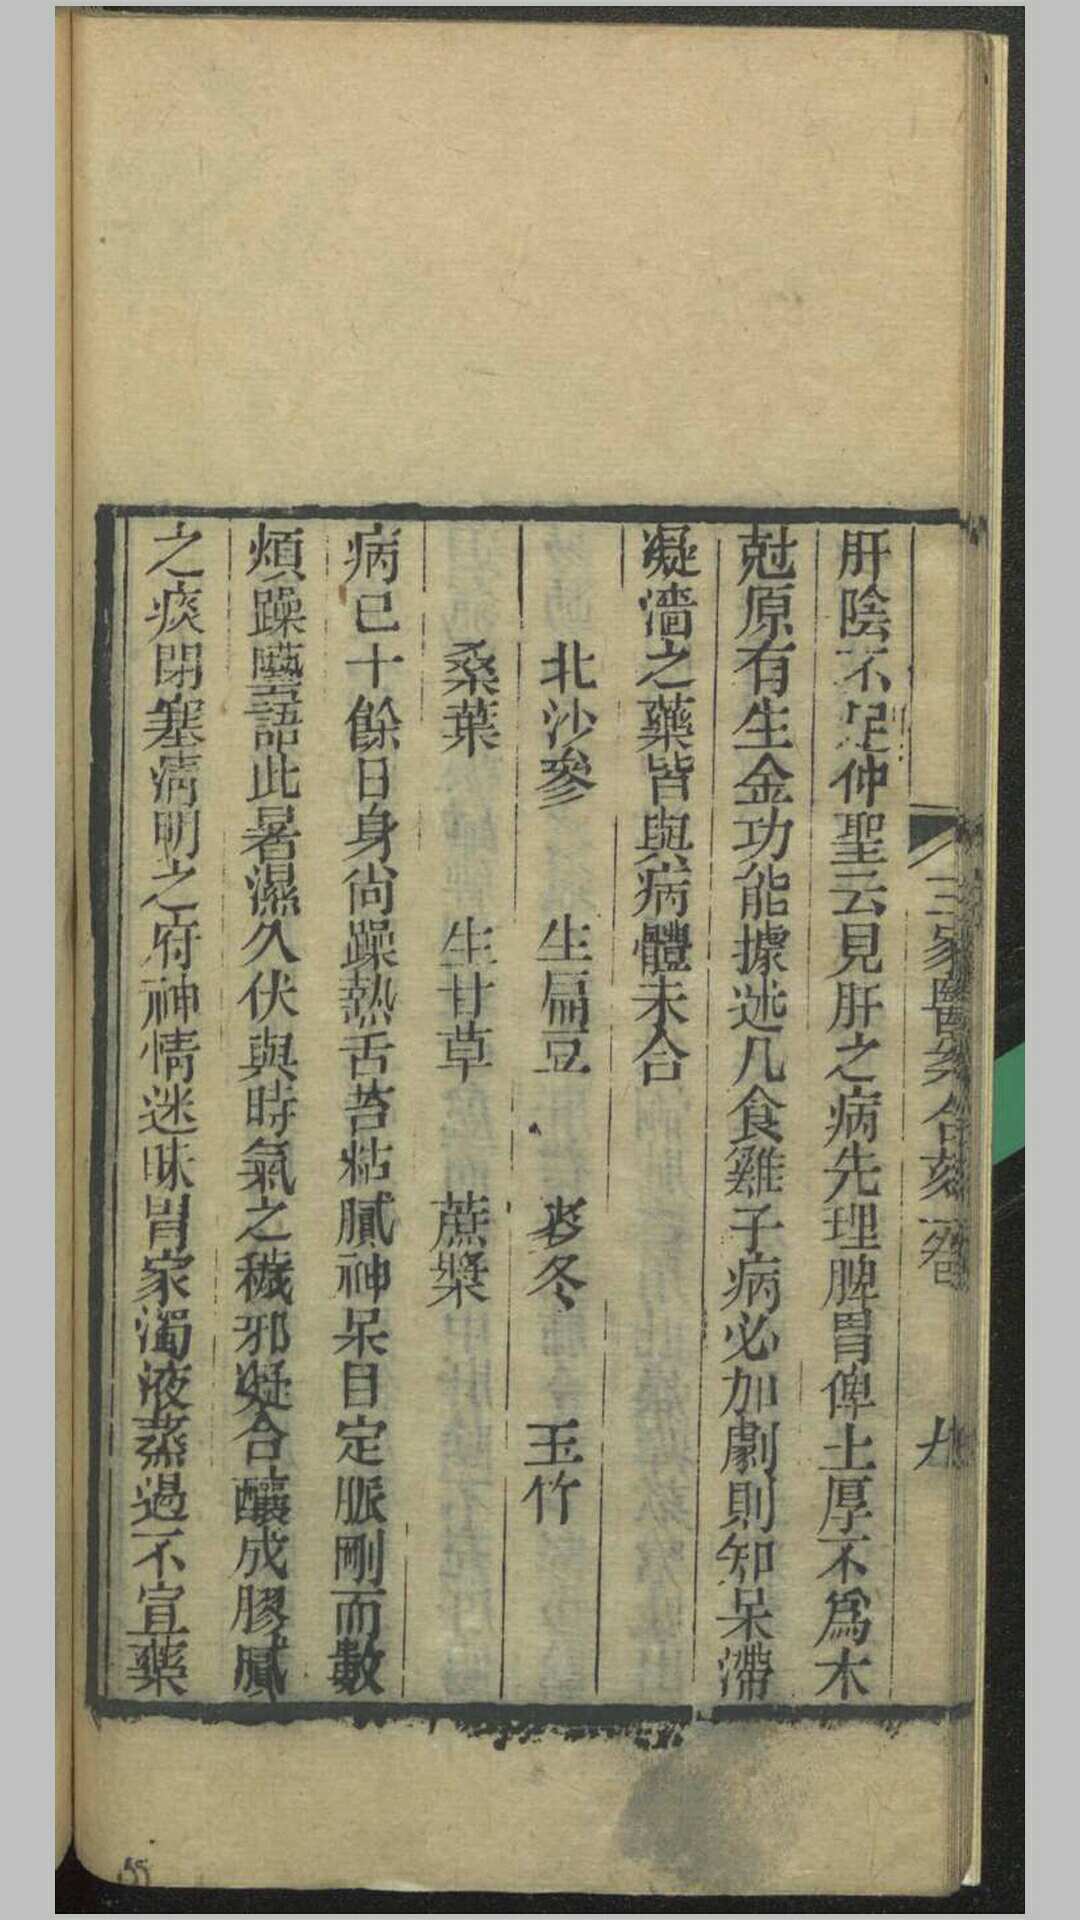 三家醫案合刻 一卷 廾
肝陰不足仲聖云見肝之病先理脾胃俾土厚不爲木
尅原有生金功能據述凡食雞子病必加劇則知呆滯
凝濇之藥皆與病體未合
北沙參 生扁豆 麥冬 玉竹
桑葉 生甘草 蔗漿
病已十餘日身尙躁熱舌苔粘膩神呆目定脈剛而數
煩躁囈語此暑濕久伏與時氣之穢邪凝合釀成膠膩
之痰閉塞清明之府神情迷昧胃家濁液蒸過不宣藥
55